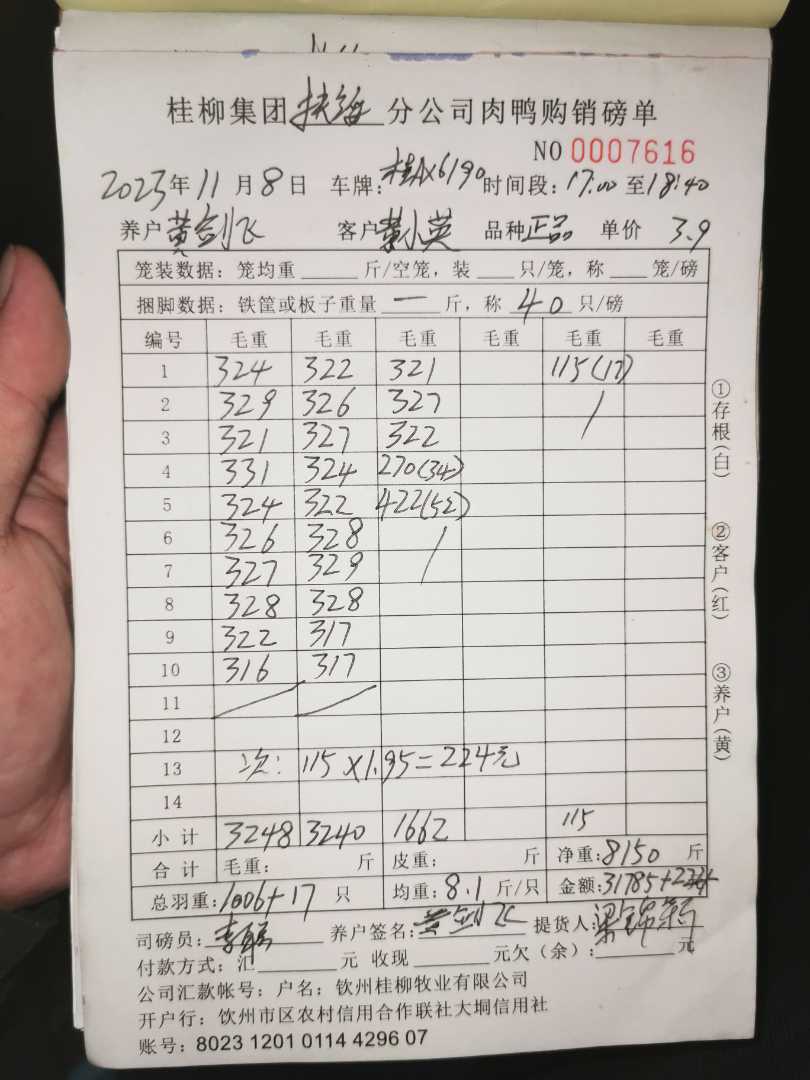 桂柳集团 扶绥 分公司肉鸭购销磅单
NO 0007616
2023年11月8日 车牌:桂AX6190 时间段:17:00至18:40
养户 黄剑飞 客户 黄小英 品种 正品 单价 3.9
笼装数据: 笼均重 斤/空笼, 装 只/笼, 称 笼/磅
捆脚数据: 铁筐或板子重量 一 斤, 称 40 只/磅
编号 毛重 毛重 毛重 毛重 毛重 毛重
1 324 322 321 115(17)
2 329 326 327 /
3 321 327 322
4 331 324 270(34)
5 324 322 422(52)
6 326 328 /
7 327 329
8 328 328
9 322 317
10 316 317
11
12
13 次: 115×1.95=224元
14
小计 3248 3240 1662 115
合计 毛重: 斤 皮重: 斤 净重:8150 斤
总羽重:1006+17 只 均重:8.1 斤/只 金额:31785+224
司磅员: 养户签名:黄剑飞 提货人:梁锦新
付款方式: 汇 元 收现 元欠(余): 元
公司汇款帐号: 户名: 钦州桂柳牧业有限公司
开户行: 饮州市区农村信用合作联社大垌信用社
账号: 8023 1201 0114 4296 07
①存根(白)
②客户(红)
③养户(黄)